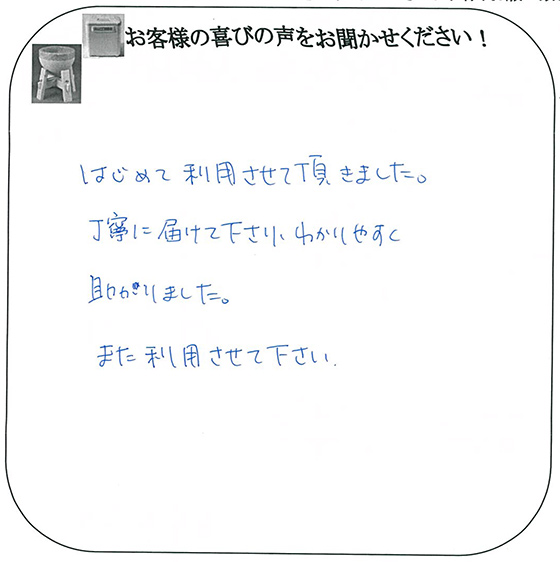 お客様の喜びの声をお聞かせください！
はじめて利用させて頂きました。
丁寧に届けて下さり、わかりやすく
助かりました。
また利用させて下さい.